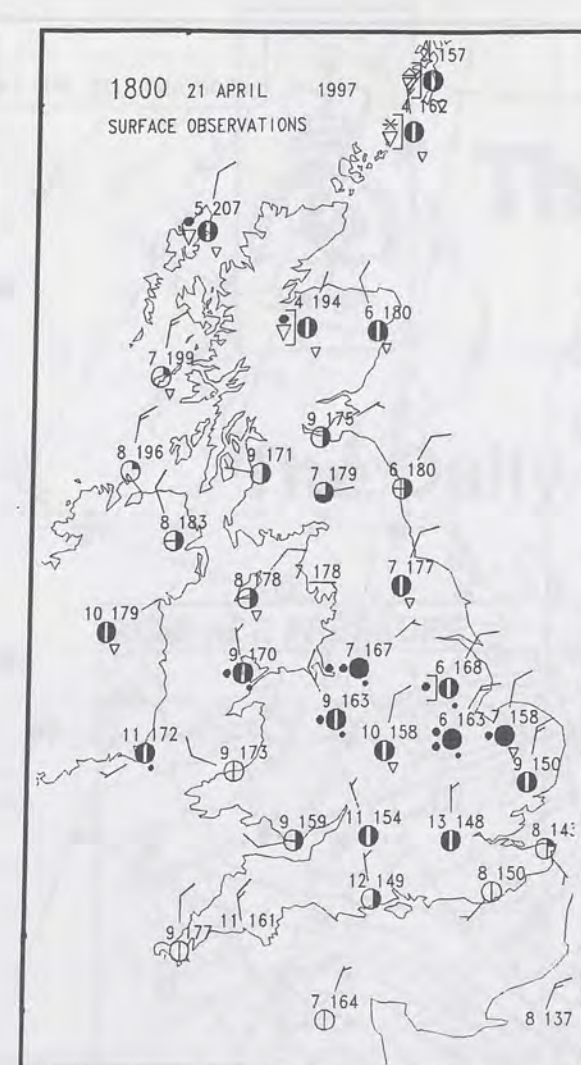 2 157
1800 21 APRIL 1997
4 162
SURFACE OBSERVATIONS
5 207
4 194
6 180
7 199
9 175
8 196
9 171
7 179
6 180
8 183
8 178
7 178
7 177
10 179
9 170
7 167
6 168
9 163
10 158
6 163
7 158
11 172
9 173
9 150
9 159
11 154
13 148
8 143
12 149
8 150
9 177
11 161
7 164
8 137